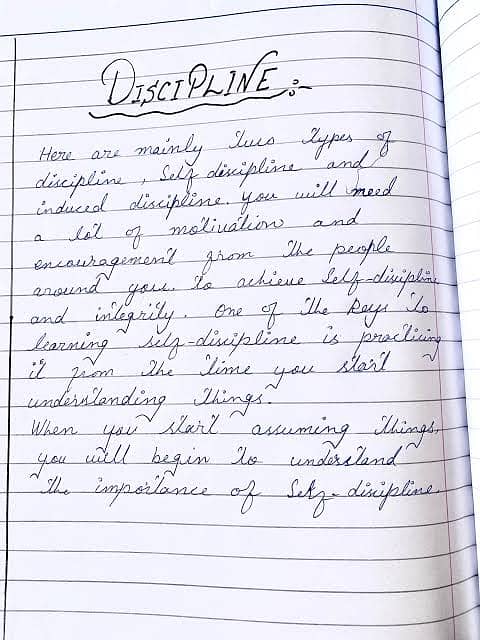 DISCIPLINE :-
Here are mainly two types of
discipline, Self discipline and
induced discipline. you will need
a lot of motivation and
encouragement from the people
around you. to achieve Self-discipline
and integrity. One of the Keys to
learning self-discipline is practicing
it from the time you start
understanding things.
When you start assuming things,
you will begin to understand
the importance of Self-discipline.